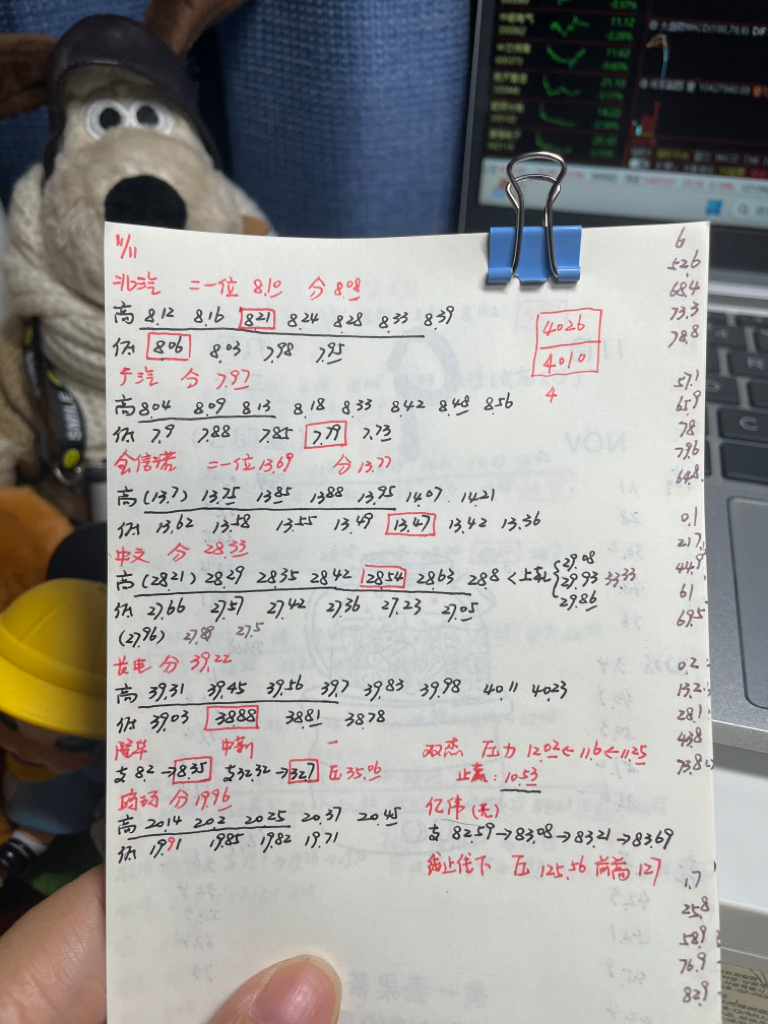 11/11
北汽 二一位 8.10 分 8.08
高 8.12 8.16 8.21 8.24 8.28 8.33 8.39
低 8.06 8.03 7.98 7.95
4026
4010
4
于汽 分 7.97
高 8.04 8.09 8.13 8.18 8.33 8.42 8.48 8.56
低 7.9 7.88 7.85 7.79 7.73
会信诺 二一位 13.69 分 13.77
高 (13.7) 13.75 13.85 13.88 13.95 14.07 14.21
低 13.62 13.58 13.55 13.49 13.47 13.42 13.36
中文 分 28.33
高 (28.21) 28.29 28.35 28.42 28.54 28.63 28.8 < 上轨 { 29.08 29.93 29.86 33.33
低 27.66 27.57 27.42 27.36 27.23 27.05
(27.96) 27.88 27.5
分 39.22
高 39.31 39.45 39.56 39.7 39.83 39.98 40.11 40.23
低 39.03 38.88 38.81 38.78
隆华 中利 一
支 8.2 → 8.35 支 32.32 → 32.7 压 35.06
分 19.96
高 20.14 20.2 20.25 20.37 20.45
低 19.91 19.85 19.82 19.71
双杰 压力 12.02 ← 11.6 ← 11.25
止赢: 10.53
亿伟 (无)
支 82.59 → 83.08 → 83.21 → 83.69
线上线下 压 125.56 前高 127
6
52.6
68.4
73.3
78.8
57.1
65.9
78
79.6
64.8
0.1
21.7
44.9
61
69.5
0.2
13.2
28.1
43.8
73.8
1.7
25.8
58.9
76.9
82.9
SMILE